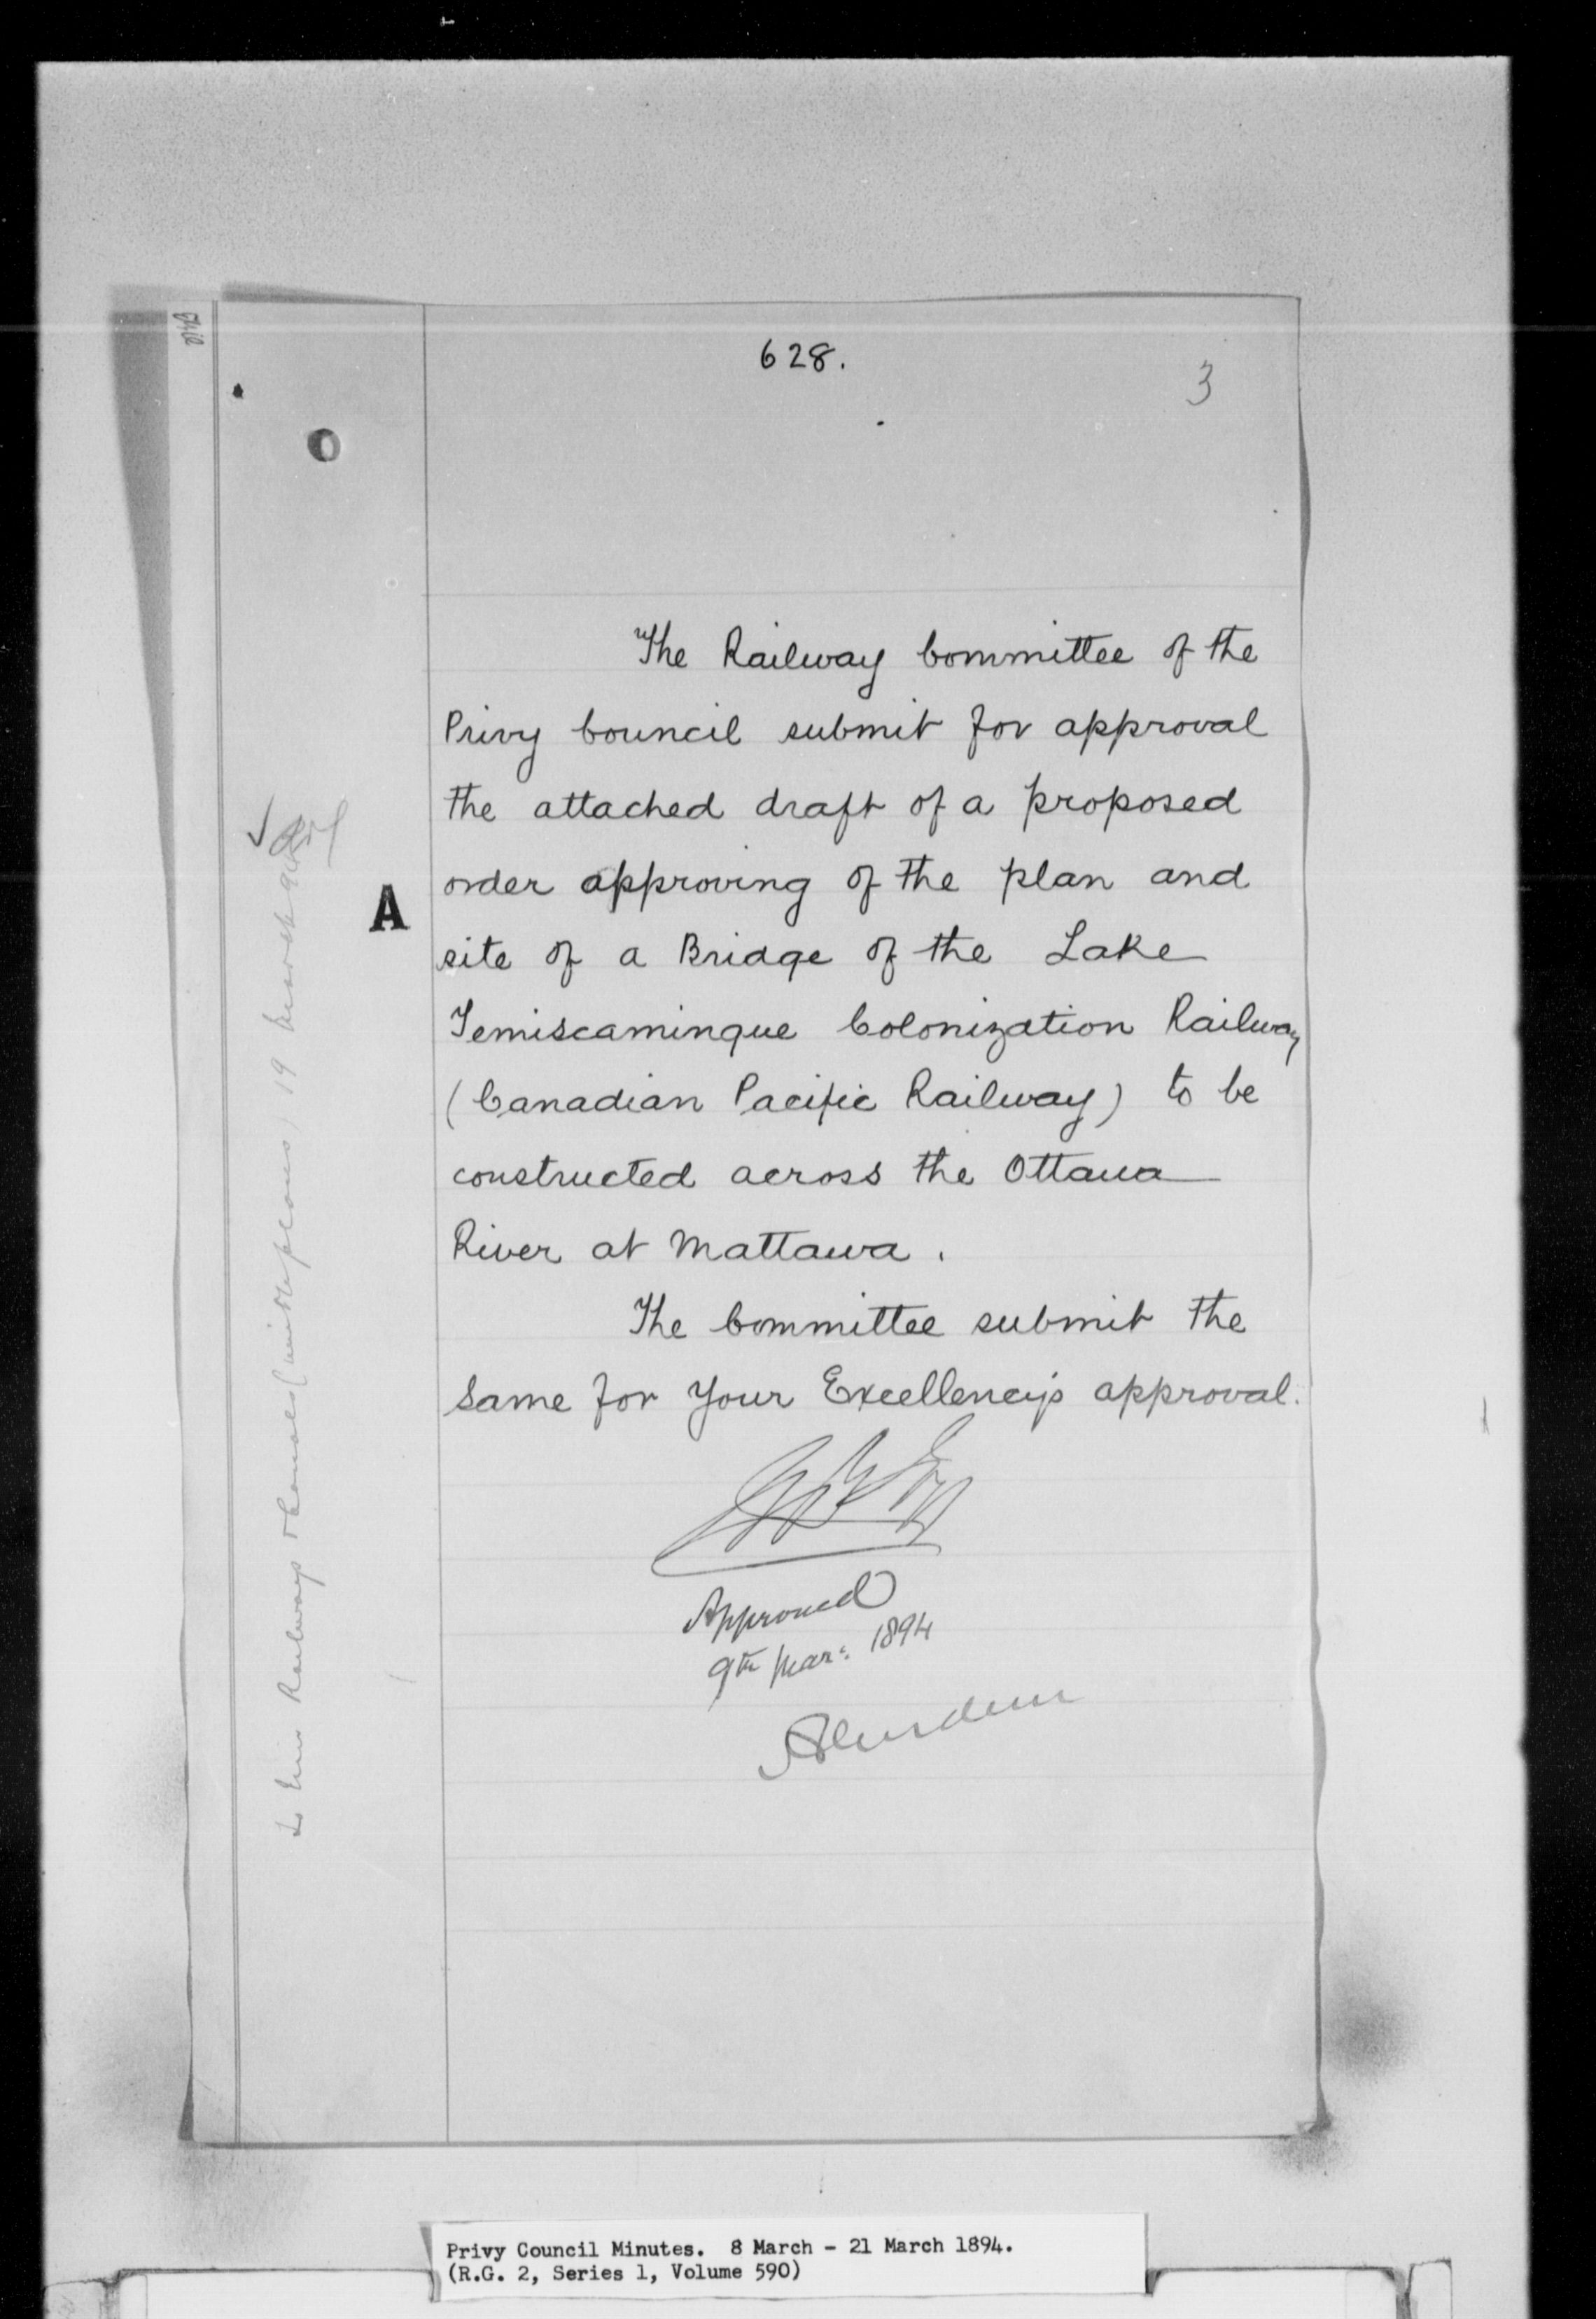 628.
3
A
The Railway Committee of the
Privy Council submit for approval
the attached draft of a proposed
order approving of the plan and
site of a Bridge of the Lake
Temiscamingue Colonization Railway
(Canadian Pacific Railway) to be
constructed across the Ottawa
River at Mattawa.
The Committee submit the
same for Your Excellency's approval.
Approved
9th Mar: 1894
Aberdeen
To Min Railways & Canals (with plans) 19 March 94
Privy Council Minutes. 8 March - 21 March 1894.
(R.G. 2, Series 1, Volume 590)